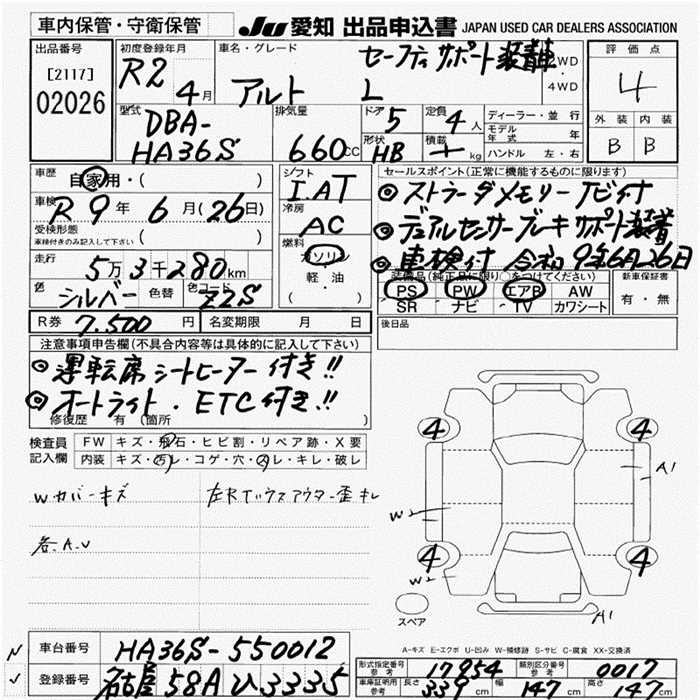 車内保管・守衛保管 JU 愛知 出品申込書 JAPAN USED CAR DEALERS ASSOCIATION
出品番号 初度登録年月 車名・グレード セーフティサポート装着車 2WD ・ 4WD 評価点
[2117] R2 4月 アルト L 4
02026
型式 排気量 ドア 5 定員 4人 ディーラー・並行 外装 内装
DBA- 形状 積載 モデル年式 年 B B
HA36S 660CC HB kg ハンドル 左・右
車歴 自家用・( ) シフト I.AT セールスポイント(正常に機能するものに限ります)
車検 R9年6月(26日) 冷房 AC ◎ストラーダメモリーナビ付
受検形態 車検付きのみ記入して下さい ( ) ◎デュアルセンサーブレーキサポート装着
燃料 ガソリン 軽・油 ( ・ ) ◎車検付 令和9年6月26日
走行 5万3千280km 装備品(純正品に限り○をつけてください) 新車保証書
色 シルバー 色替 色コード Z2S PS PW エアB AW 有・無
SR ナビ TV カワシート
R券 7,500円 名変期限 月 日 後日品
注意事項申告欄(不具合内容等は具体的に記入して下さい)
◎運転席シートヒーター付き!!
◎オートライト・ETC付き!!
修復歴 有 (箇所 )
検査員記入欄 FW キズ・飛石・ヒビ割・リペア跡・X要
内装 キズ・汚レ・コゲ・穴・スレ・キレ・破レ
Wカバーキズ 左Rドックスアウター歪キレ
各A.U
4 4
A1
W2
4 4
W2
A1
スペア
A-キズ E-エクボ U-凹み W-補修跡 S-サビ C-腐食 XX-交換済
車台番号 HA36S-550012 型式指定番号 参考 17954 類別区分番号 参考 0017
登録番号 名古屋 58A ひ 3335 車庫証明用 参考 長さ 339cm 幅 147cm 高さ 147cm